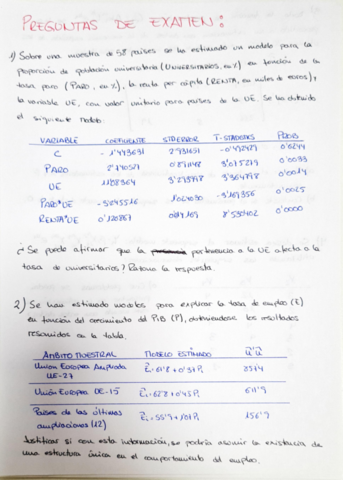 PREGUNTAS DE EXAMEN:
1) Sobre una muestra de 58 países se ha estimado un modelo para la
proporción de población universitaria (UNIVERSITARIOS, en %) en función de la
tasa paro (PARO, en %), la renta per cápita (RENTA, en miles de euros) y
la variable UE, con valor unitario para países de la UE. Se ha obtenido
el siguiente modelo:
VARIABLE COEFICIENTE STDERROR T-STADISTICS PROB
C 2'931651 0'6244
PARO 2'740527 0'891148 3'075279 0'0033
UE 3'364798 0'0014
PARO*UE 0'0025
RENTA*UE 0'120867 8'530402 0'0000
¿Se puede afirmar que la pertenencia a la UE afecta a la
tasa de universitarios? Razona la respuesta.
2) Se han estimado modelos para explicar la tasa de empleo (E)
en función del crecimiento del PIB (P), obteniéndose los resultados
resumidos en la tabla.
ÁMBITO MUESTRAL MODELO ESTIMADO û'û
Unión Europea Ampliada
UE-27 851'4
Unión Europea UE-15 611'9
Países de las últimas
ampliaciones (12) 156'9
Justificar si con esta información, se podría asumir la existencia de
una estructura única en el comportamiento del empleo.